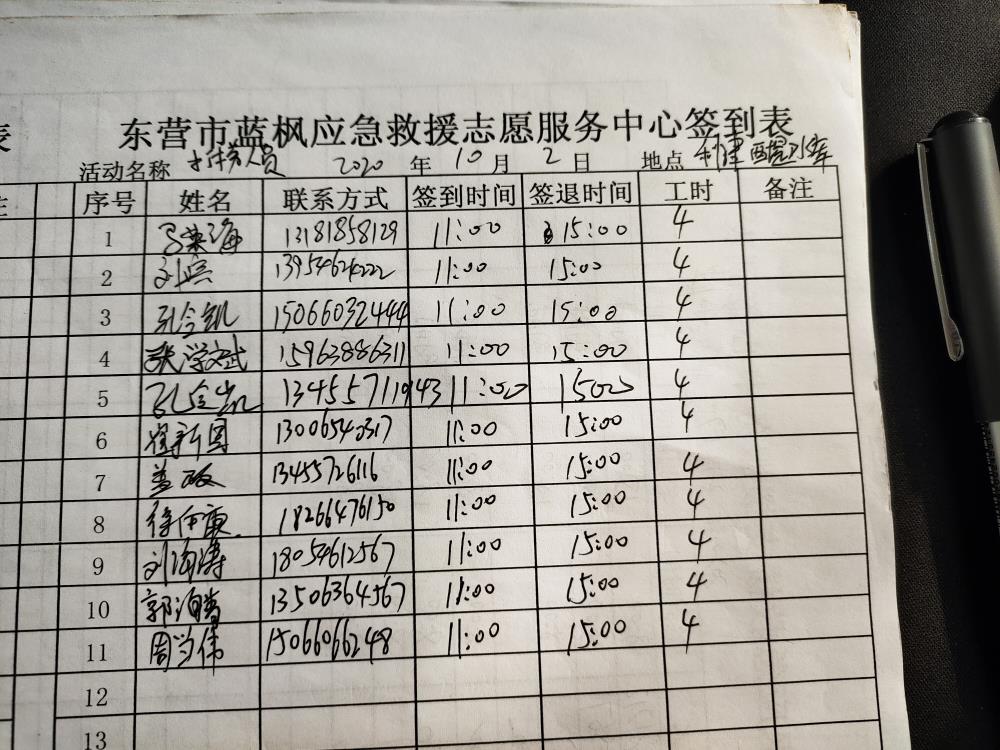 东营市蓝枫应急救援志愿服务中心签到表
活动名称 人员 2020 年 10 月 2 日 地点 利津 水库
序号 姓名 联系方式 签到时间 签退时间 工时 备注
1 海 13181858129 11:00 15:00 4
2 刘宾 13954624222 11:00 15:00 4
3 孔令凯 15066032444 11:00 15:00 4
4 张学武 15963886311 11:00 15:00 4
5 孔令凯 13455711943 11:00 1500 4
6 崔新国 13006540317 11:00 15:00 4
7 盖 13455726116 11:00 15:00 4
8 徐 18266476150 11:00 15:00 4
9 刘海涛 18054612567 11:00 15:00 4
10 郭海鹏 13506364567 11:00 15:00 4
11 周学伟 15066066248 11:00 15:00 4
12
13